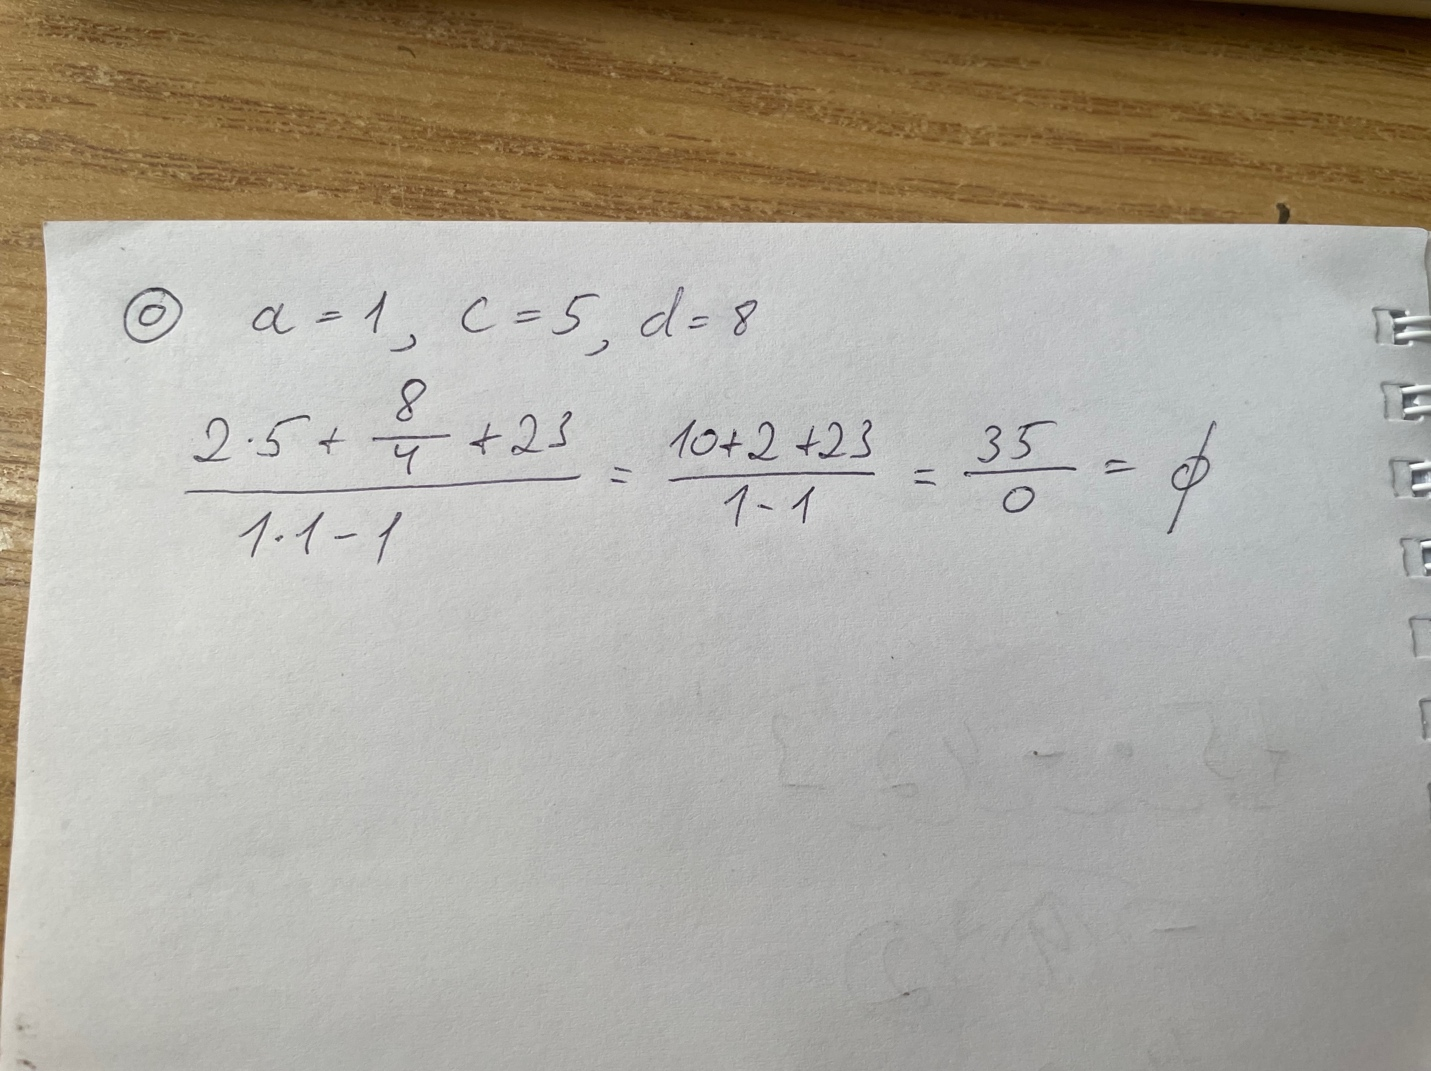 ⓪ a = 1, c = 5, d = 8
(2·5 + 8/4 + 23)/(1·1 - 1) = (10+2+23)/(1-1) = 35/0 = ϕ